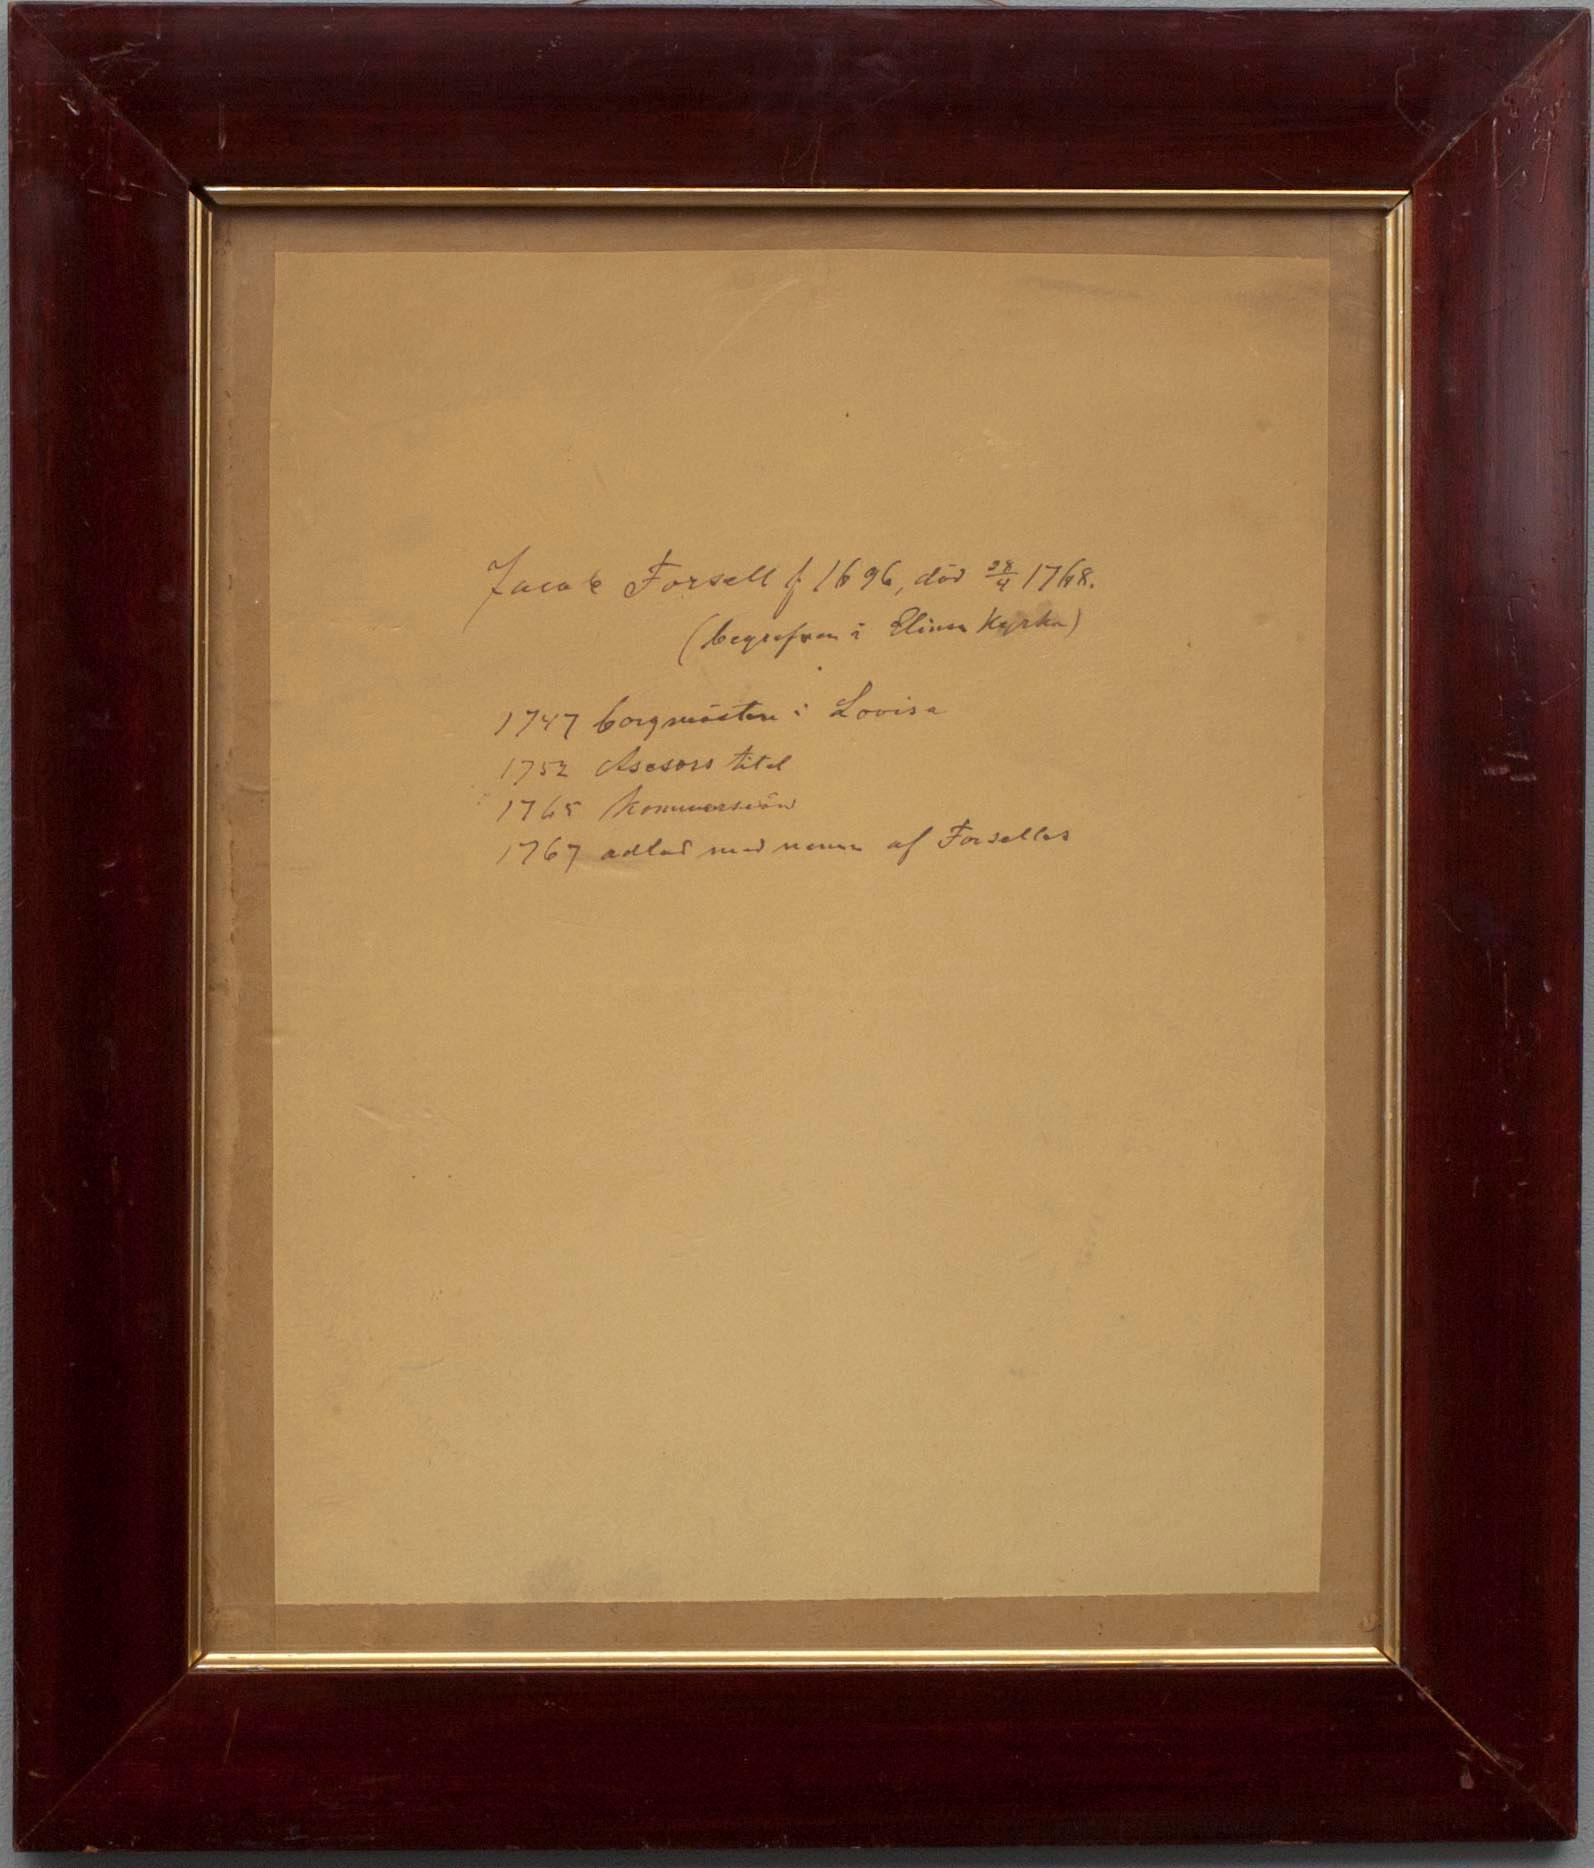 Jacob Forsell f 1696, död 28/4 1768.
(begrafven i Elimä Kyrka)
1747 borgmästare i Lovisa
1752 Asesors titel
1765
1767 adlad med namn af Forselles